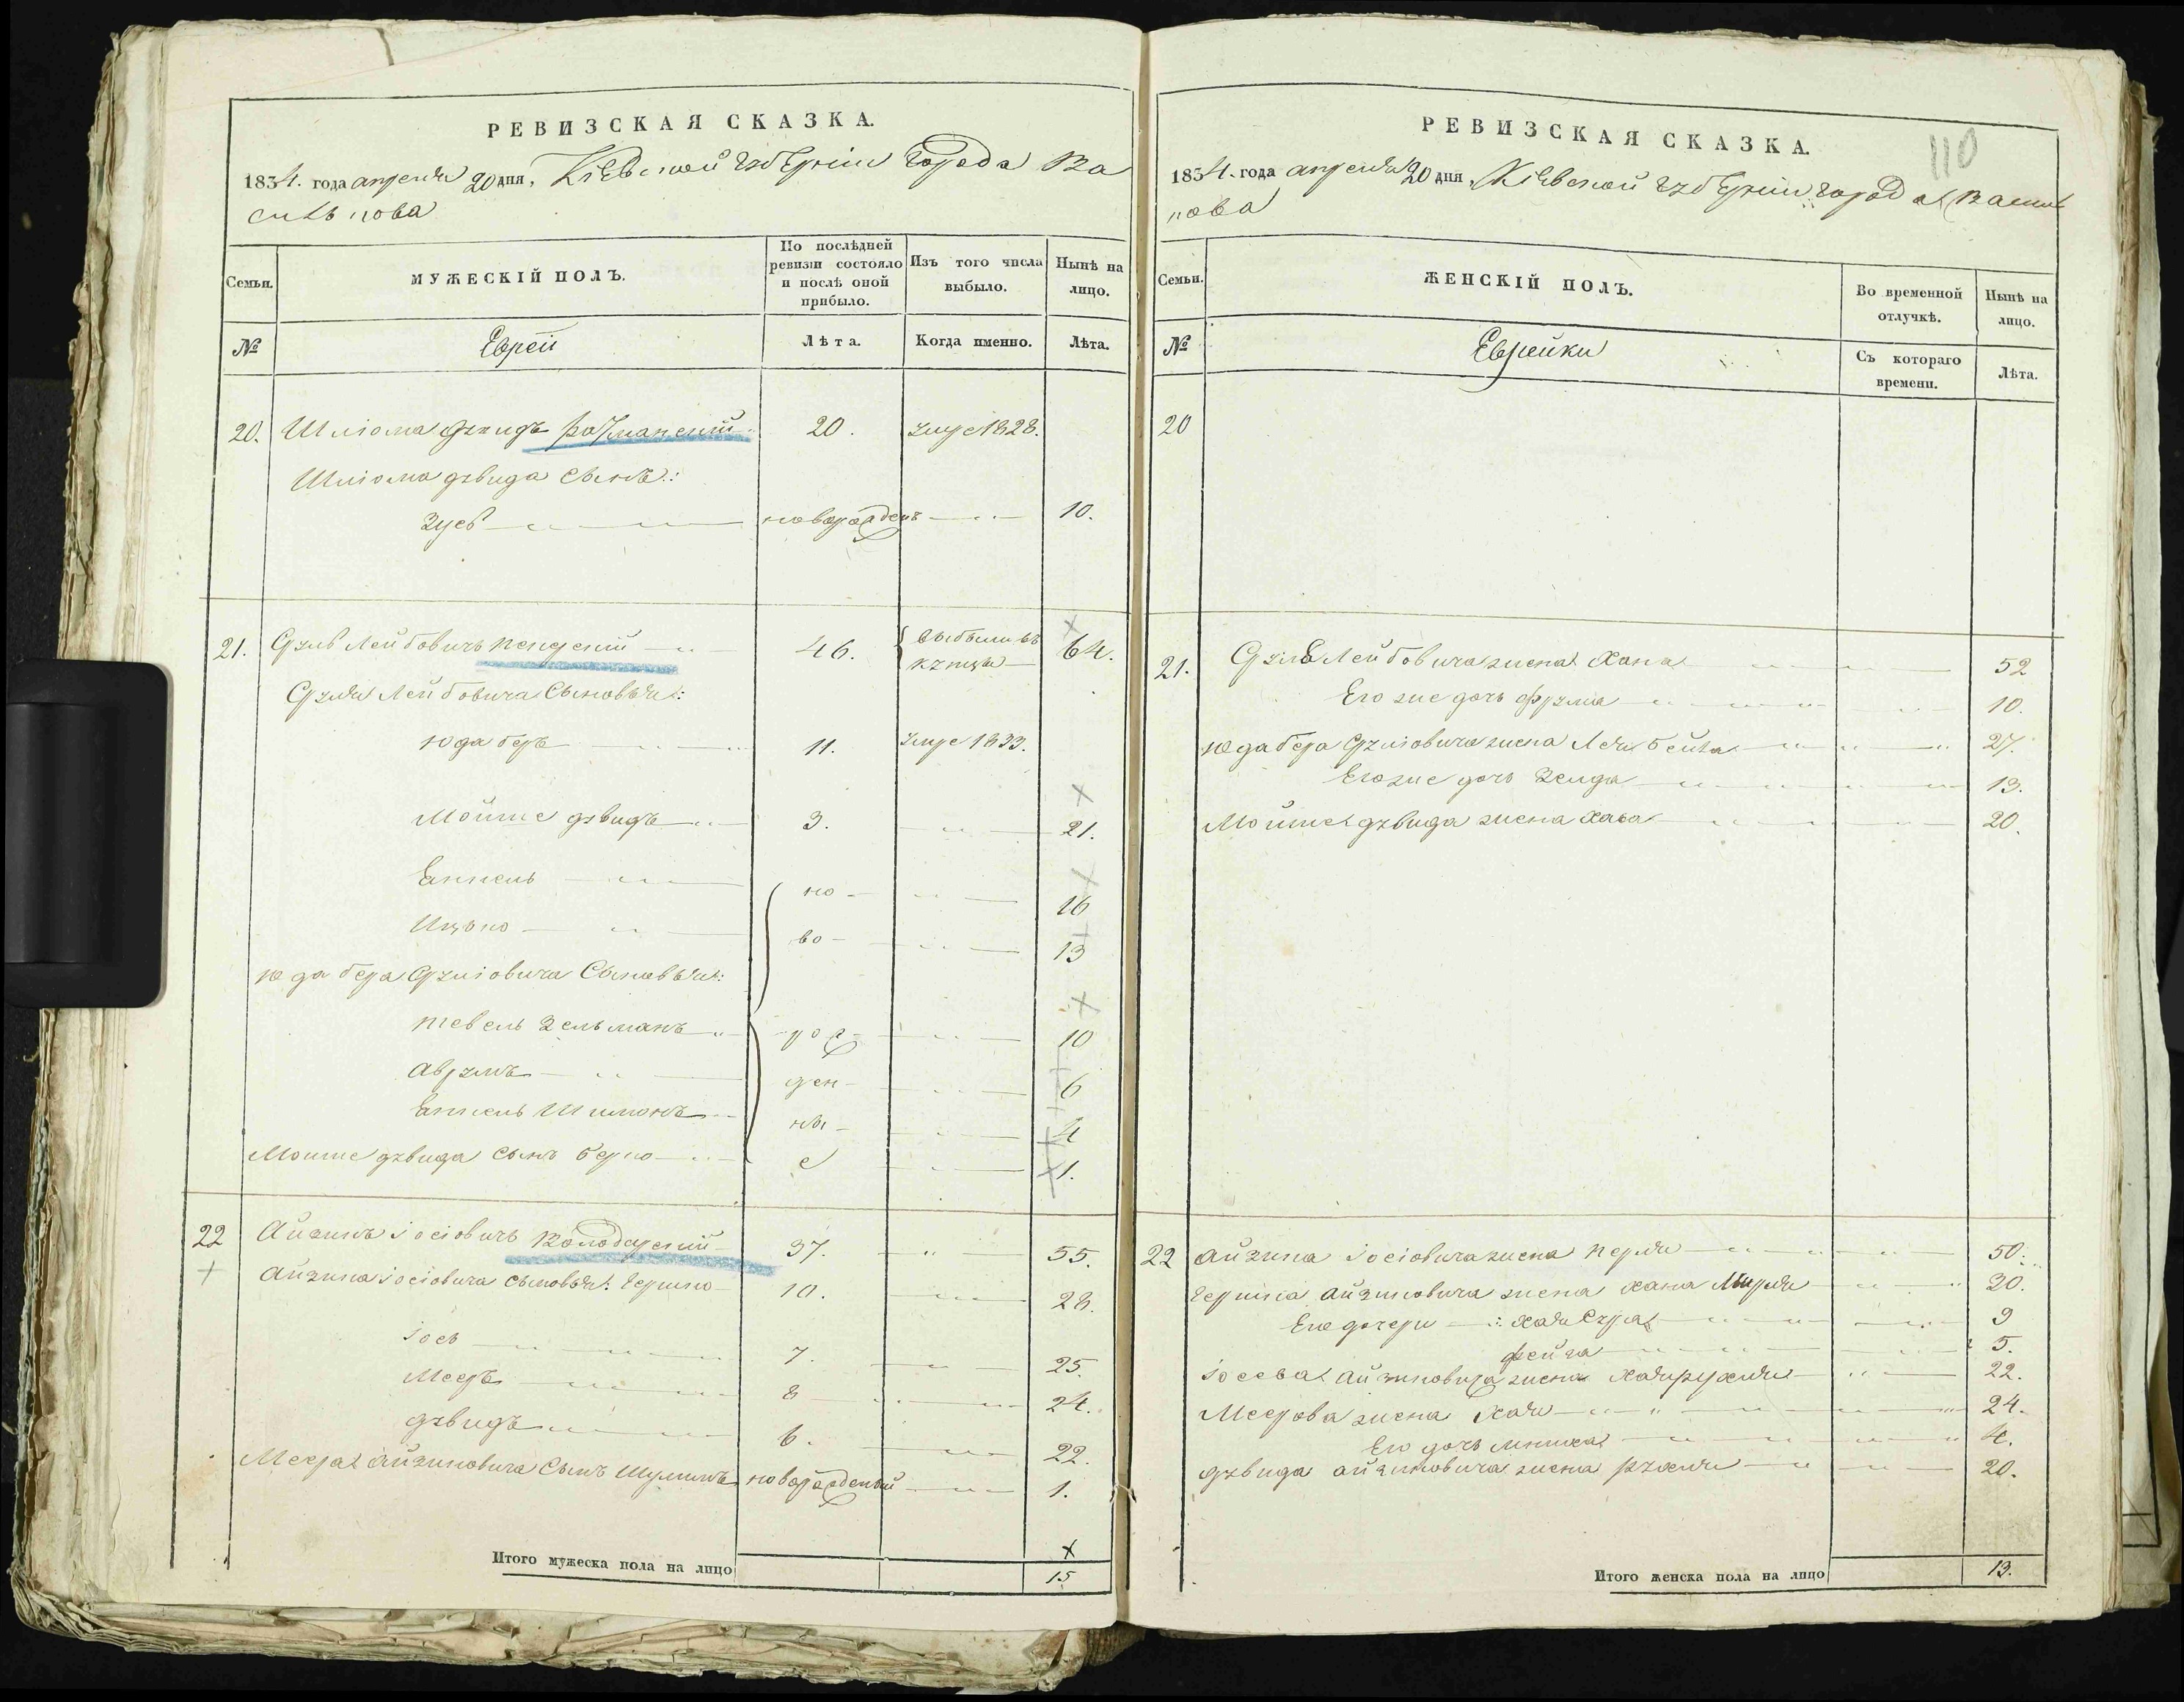 РЕВИЗСКАЯ СКАЗКА.
1834. года апреля 20 дня, Кіевской губерніи города Ва
силькова
Семьи.
МУЖЕСКІЙ ПОЛЪ.
По послѣдней ревизіи состояло и послѣ оной прибыло.
Изъ того числа выбыло.
Нынѣ на лицо.
№
Евреи
Лѣта.
Когда именно.
Лѣта.
20. Шліома 20. умре 1828.
Шліома двида сынъ:
Зусь новорожденъ 10.
21. Срулъ Лейбовичъ 46. 64.
Сруля Лейбовича Сыновья:
Юда беръ 11. умре 1833.
Мойше двидъ 3. 21.
Янкель но- 16
Ицько во- 13
Юда бера Сруліовича Сыновья:
Тевель Зельманъ рож- 10
Аврумъ ден- 6
Шимонъ ны- 4
Мошие двида сынъ берко е 1.
22 Айзикъ Іосіовичъ Володарский 37. 55.
Айзика Іосіовича сыновья: Гершко 10. 28.
Іось 7. 25.
Мееръ 8 24.
двидъ 6. 22.
Меера Айзиковича Сынъ новорожденый 1.
Итого мужеска пола на лицо 15
РЕВИЗСКАЯ СКАЗКА.
110
1834. года апреля 20 дня, Кіевской губерніи города Василь
кова
Семьи.
ЖЕНСКІЙ ПОЛЪ.
Во временной отлучкѣ.
Нынѣ на лицо.
№
Еврейки
Съ котораго времени.
Лѣта.
20
21. Лейбовича жена Хана 52
Его же дочь Фрума 10.
Юда бера Сруліовича жена Лея бейла 27.
Его же дочь Зелда 13.
Мойше двида жена Хава 20.
22 Айзика Іосіовича жена Перля 50.
Гершка Айзиковича жена Хана Мирля 30.
Его дочери: Хая Сура 9
фейга 5.
Іосева Айзиковича жена 22.
Меерова жена Хая 24.
Его дочь 4.
двида Айзиковича жена Рухля 20.
Итого женска пола на лицо 13.